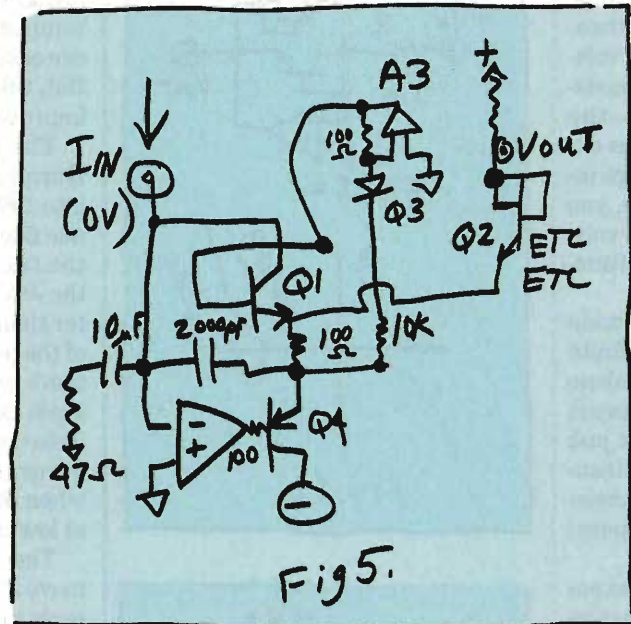 A3
+
I IN
(0V)
100
Ω
Q3
VOUT
Q2
ETC
ETC
Q1
10µF
2000pf
100
Ω
10K
47Ω
-
+
100
Q4
-
Fig 5.